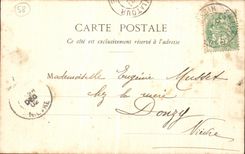 58
CARTE POSTALE
Ce côté est exclusivement réservé à l'adresse
Mademoiselle Eugénie Musset
chez la
Donzy
Nièvre
DÉC